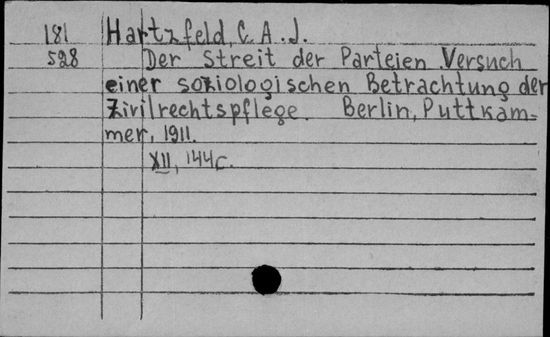 181 Hartzfeld, C. A. J.
528 Der Streit der Parteien Versuch
einer soziologischen Betrachtung der
Zivilrechtspflege. Berlin, Puttkam=
mer, 1911.
XII, 144 c.